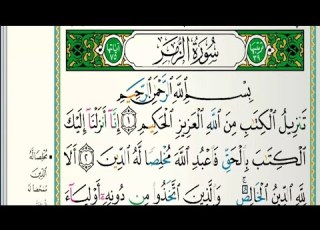 سُورَةُ الزُّمَرِ
بِسْمِ اللَّهِ الرَّحْمَٰنِ الرَّحِيمِ
تَنزِيلُ الْكِتَٰبِ مِنَ اللَّهِ الْعَزِيزِ الْحَكِيمِ ١ إِنَّا أَنزَلْنَا إِلَيْكَ
الْكِتَٰبَ بِالْحَقِّ فَاعْبُدِ اللَّهَ مُخْلِصًا لَّهُ الدِّينَ ٢ أَلَا
لِلَّهِ الدِّينُ الْخَالِصُ وَالَّذِينَ اتَّخَذُوا مِن دُونِهِ أَوْلِيَاءَ
مُخْلِصًا لَّهُ
الدِّينَ